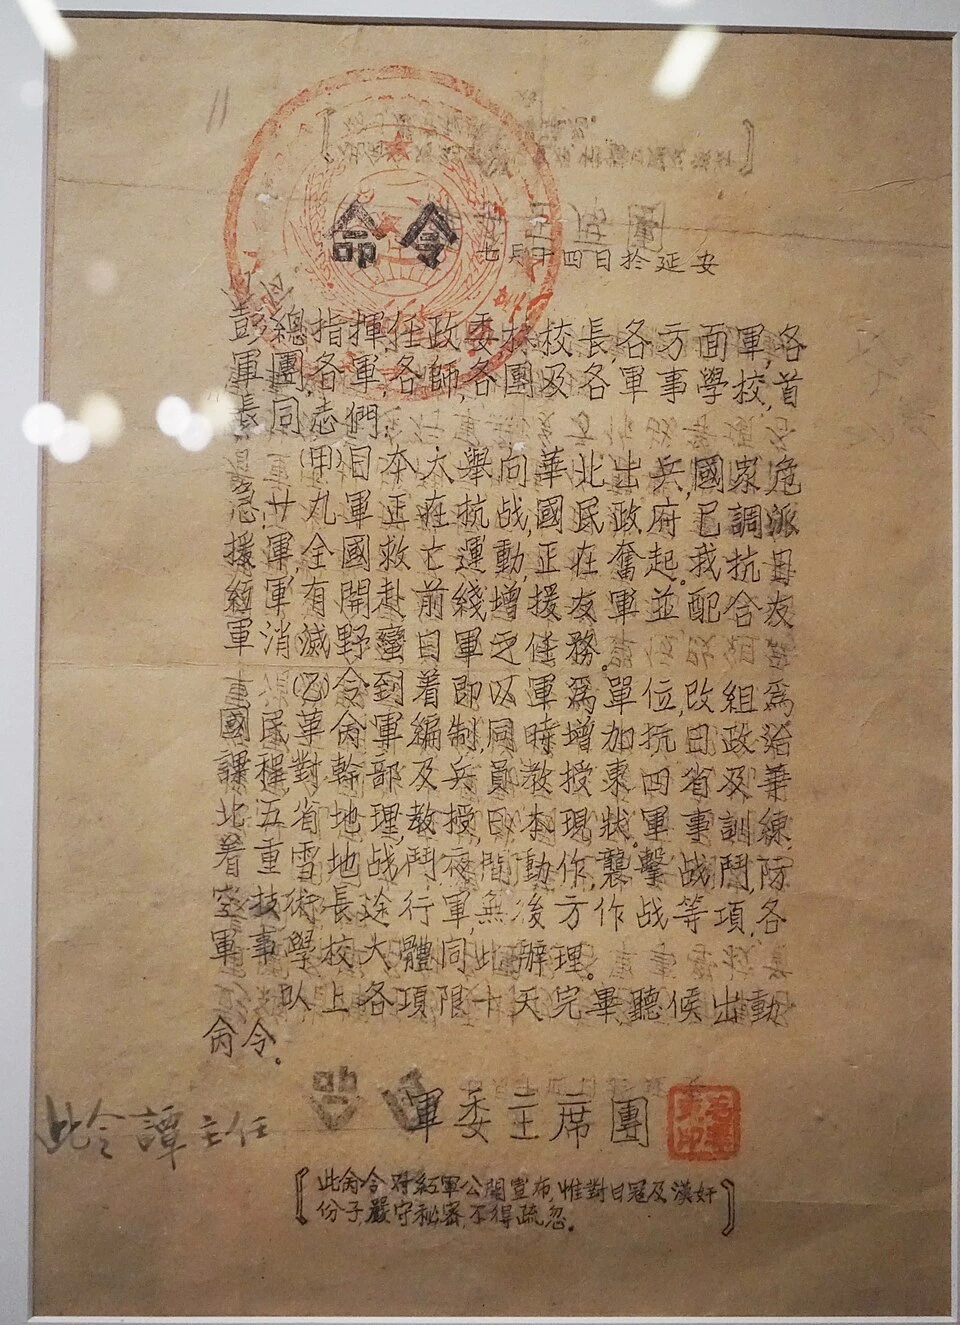 命令
七月十四日於延安
彭總指揮,任政委林校長,各方面軍,各
軍團,各軍,各師,各團及各軍事學校,首
長同志們:
(甲)日本大舉向華北出兵,國家危
急,廿九軍正在抗战,國民政府已調派
援軍,全國救亡運動,正在奮起。我抗日
紅軍,有開赴前綫增援友軍並配合友
軍消滅野蠻日軍之任務。
(乙)令到着即以軍爲單位,改組爲
國民革命軍編制,同時增加抗日政治
課程,對幹部及兵員教授東四省及華
北五省地理,教授日本現狀。軍事訓練,
着重雪地战鬥,夜間動作,襲擊战鬥,防
空技術,長途行軍,無後方作战等項,各
軍事學校大體同此辦理。
以上各項限十天完畢聽候出動
命令。
軍委主席團
此令譚主任
〔此命令对紅軍公開宣布,惟對日寇及漢奸
份子,嚴守秘密,不得疏忽。〕